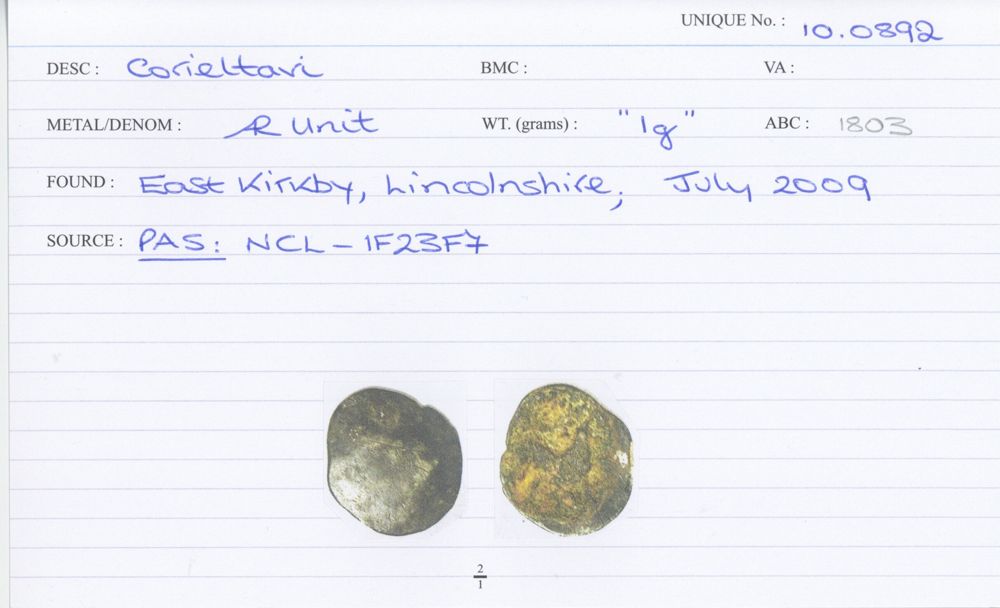 UNIQUE No. : 10.0892
DESC : Corieltavi BMC : VA :
METAL/DENOM : AR Unit WT. (grams) : "1g" ABC : 1803
FOUND : East Kirkby, Lincolnshire; July 2009
SOURCE : PAS: NCL-1F23F7
2
1